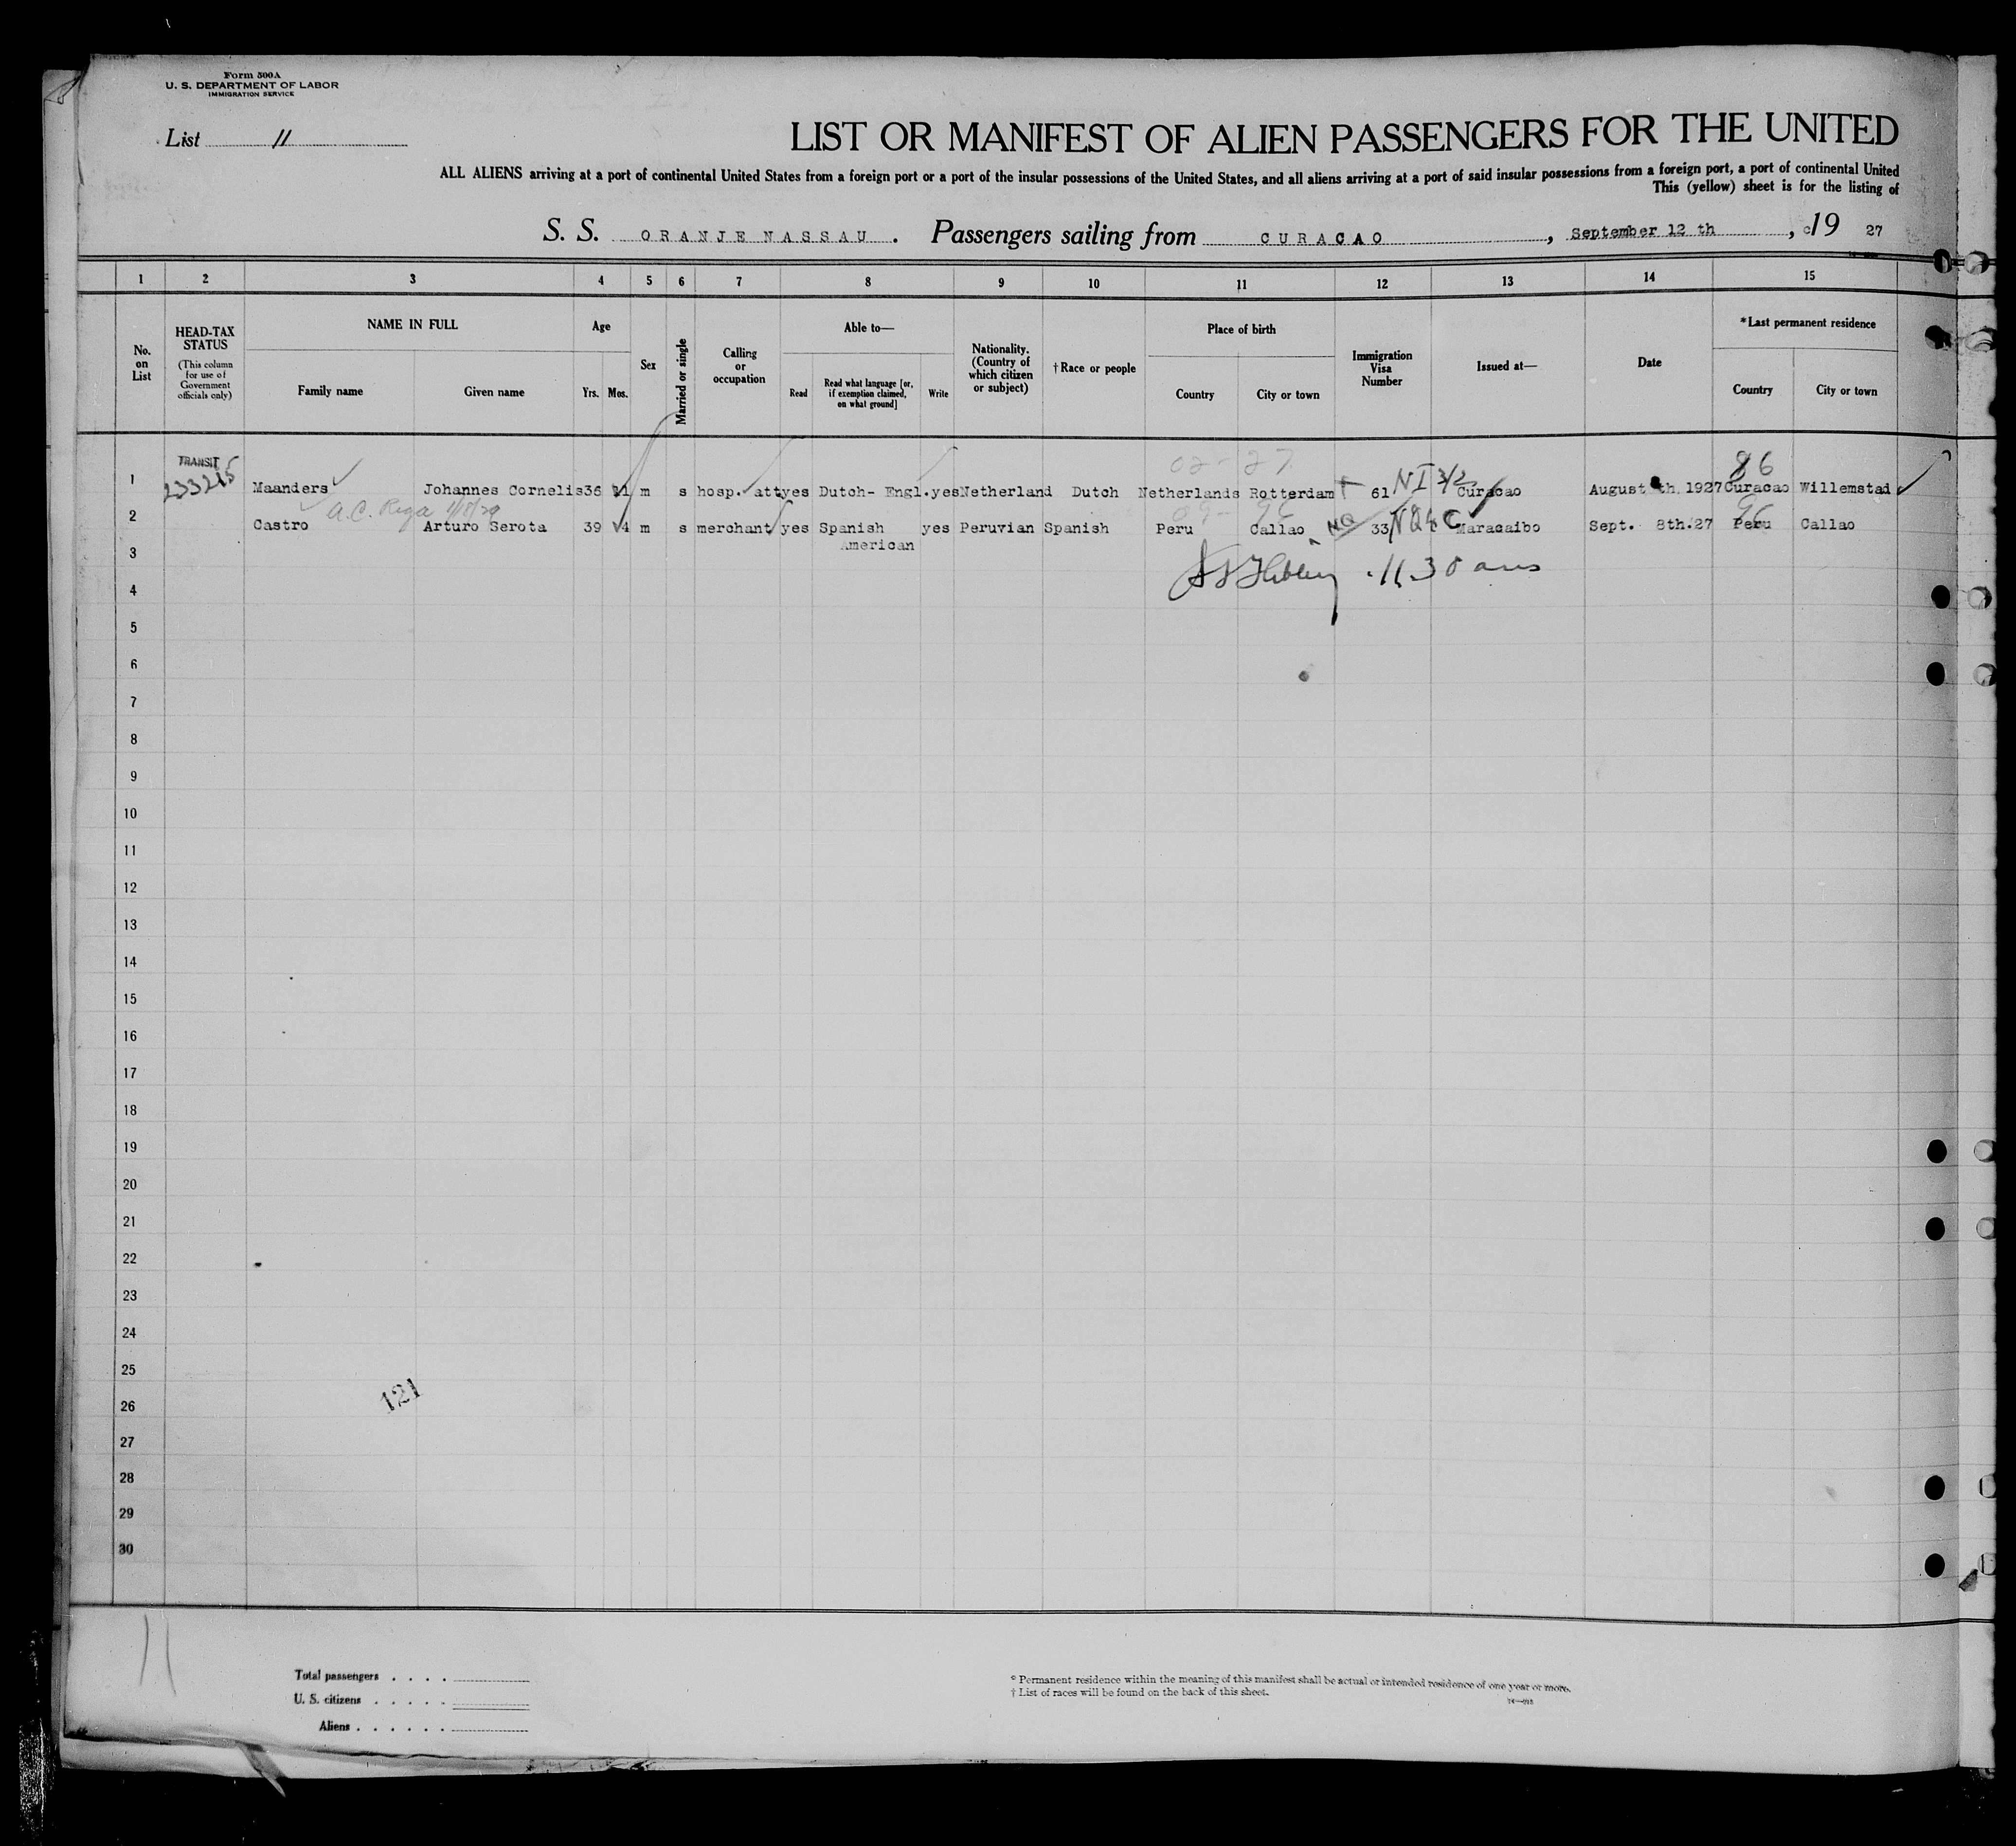 Form 500A
U. S. DEPARTMENT OF LABOR
IMMIGRATION SERVICE
List 11
LIST OR MANIFEST OF ALIEN PASSENGERS FOR THE UNITED
ALL ALIENS arriving at a port of continental United States from a foreign port or a port of the insular possessions of the United States, and all aliens arriving at a port of said insular possessions from a foreign port, a port of continental United
This (yellow) sheet is for the listing of
S. S. ORANJE NASSAU . Passengers sailing from CURACAO , September 12 th , 19 27
1 2 3 4 5 6 7 8 9 10 11 12 13 14 15
No. on List
HEAD-TAX STATUS
(This column for use of Government officials only)
NAME IN FULL
Family name
Given name
Age
Yrs.
Mos.
Sex
Married or single
Calling or occupation
Able to—
Read
Read what language [or, if exemption claimed, on what ground]
Write
Nationality. (Country of which citizen or subject)
†Race or people
Place of birth
Country
City or town
Immigration Visa Number
Issued at—
Date
*Last permanent residence
Country
City or town
TRANSIT
02-27
86
1 Maanders Johannes Cornelis 36 11 m s hosp. att yes Dutch- Engl. yes Netherland Dutch Netherlands Rotterdam 61 NI 3/2 Curacao August th. 1927 Curacao Willemstad
A.C.
2 Castro Arturo Serota 39 m s merchant yes Spanish yes Peruvian Spanish Peru Callao 33 Maracaibo Sept. 8th.27 Peru Callao
American
3
11.30
4
5
6
7
8
9
10
11
12
13
14
15
16
17
18
19
20
21
22
23
24
25
26
121
27
28
29
30
11
Total passengers
U. S. citizens
Aliens
* Permanent residence within the meaning of this manifest shall be actual or intended residence of one year or more.
† List of races will be found on the back of this sheet.